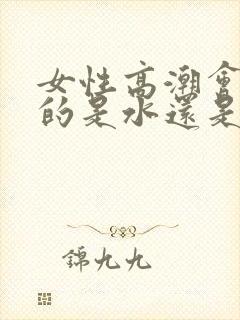 女性高潮會
的是水還是
錦九九